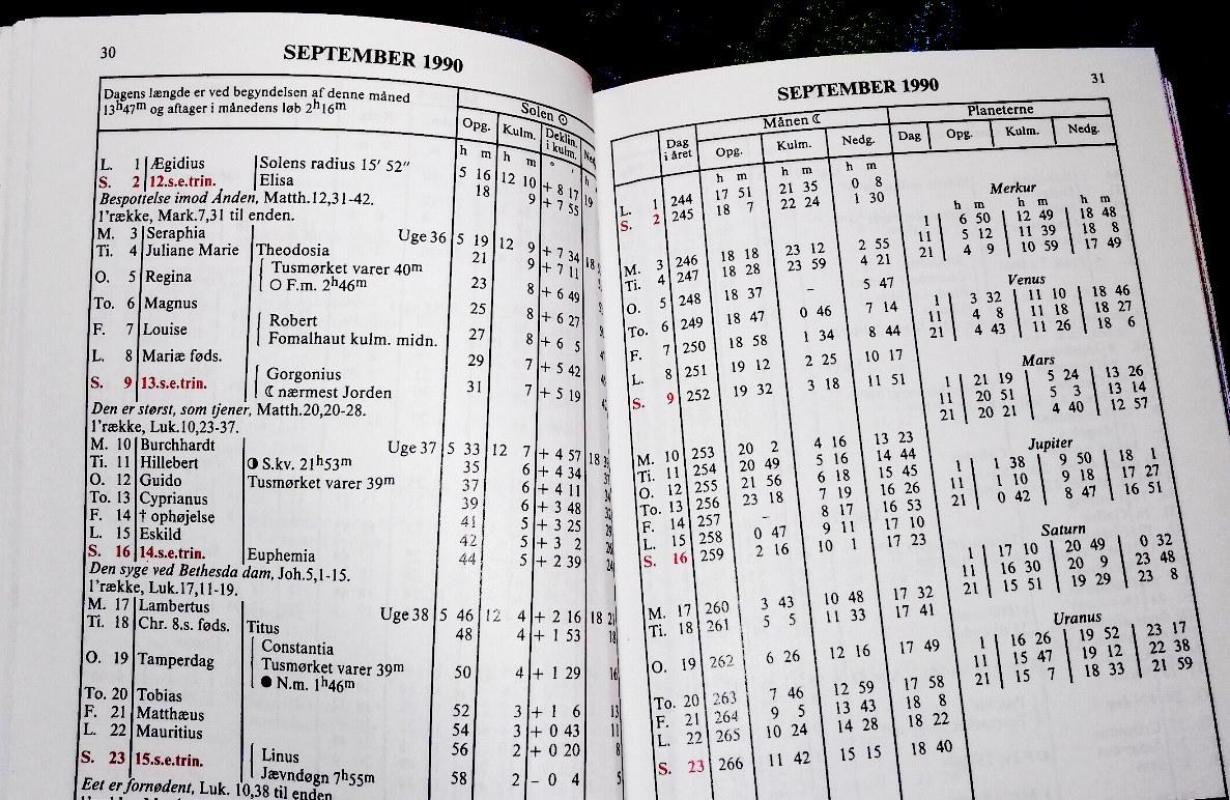 30
SEPTEMBER 1990
Dagens længde er ved begyndelsen af denne måned
13h47m og aftager i månedens løb 2h16m
Solen ☉
Opg. Kulm. Deklin. i kulm.
h m h m ° ′ h
L. 1 Ægidius Solens radius 15′ 52″ 5 16 12 10 + 8 17 19
S. 2 12.s.e.trin. Elisa 18 9 + 7 55
Bespottelse imod Ånden, Matth.12,31-42.
l'række, Mark.7,31 til enden.
M. 3 Seraphia Uge 36 5 19 12 9 + 7 34 18
Ti. 4 Juliane Marie Theodosia 21 9 + 7 11
O. 5 Regina Tusmørket varer 40m 23 8 + 6 49
○ F.m. 2h46m
To. 6 Magnus 25 8 + 6 27
F. 7 Louise Robert 27 8 + 6 5
Fomalhaut kulm. midn.
L. 8 Mariæ føds. 29 7 + 5 42
S. 9 13.s.e.trin. Gorgonius 31 7 + 5 19
☾ nærmest Jorden
Den er størst, som tjener, Matth.20,20-28.
l'række, Luk.10,23-37.
M. 10 Burchhardt Uge 37 5 33 12 7 + 4 57 18
Ti. 11 Hillebert ◑ S.kv. 21h53m 35 6 + 4 34
O. 12 Guido Tusmørket varer 39m 37 6 + 4 11
To. 13 Cyprianus 39 6 + 3 48
F. 14 † ophøjelse 41 5 + 3 25
L. 15 Eskild 42 5 + 3 2
S. 16 14.s.e.trin. Euphemia 44 5 + 2 39
Den syge ved Bethesda dam, Joh.5,1-15.
l'række, Luk.17,11-19.
M. 17 Lambertus Uge 38 5 46 12 4 + 2 16 18
Ti. 18 Chr. 8.s. føds. Titus 48 4 + 1 53
Constantia
O. 19 Tamperdag Tusmørket varer 39m 50 4 + 1 29
● N.m. 1h46m
To. 20 Tobias 52 3 + 1 6
F. 21 Matthæus 54 3 + 0 43
L. 22 Mauritius 56 2 + 0 20
S. 23 15.s.e.trin. Linus 58 2 - 0 4
Jævndøgn 7h55m
Eet er fornødent, Luk. 10,38 til enden
31
SEPTEMBER 1990
Dag i året Månen ☾ Planeterne
Opg. Kulm. Nedg. Dag Opg. Kulm. Nedg.
h m h m h m
L. 1 244 17 51 21 35 0 8
S. 2 245 18 7 22 24 1 30
M. 3 246 18 18 23 12 2 55
Ti. 4 247 18 28 23 59 4 21
O. 5 248 18 37 – 5 47
To. 6 249 18 47 0 46 7 14
F. 7 250 18 58 1 34 8 44
L. 8 251 19 12 2 25 10 17
S. 9 252 19 32 3 18 11 51
M. 10 253 20 2 4 16 13 23
Ti. 11 254 20 49 5 16 14 44
O. 12 255 21 56 6 18 15 45
To. 13 256 23 18 7 19 16 26
F. 14 257 – 8 17 16 53
L. 15 258 0 47 9 11 17 10
S. 16 259 2 16 10 1 17 23
M. 17 260 3 43 10 48 17 32
Ti. 18 261 5 5 11 33 17 41
O. 19 262 6 26 12 16 17 49
To. 20 263 7 46 12 59 17 58
F. 21 264 9 5 13 43 18 8
L. 22 265 10 24 14 28 18 22
S. 23 266 11 42 15 15 18 40
Merkur
h m h m h m
1 6 50 12 49 18 48
11 5 12 11 39 18 8
21 4 9 10 59 17 49
Venus
1 3 32 11 10 18 46
11 4 8 11 18 18 27
21 4 43 11 26 18 6
Mars
1 21 19 5 24 13 26
11 20 51 5 3 13 14
21 20 21 4 40 12 57
Jupiter
1 1 38 9 50 18 1
11 1 10 9 18 17 27
21 0 42 8 47 16 51
Saturn
1 17 10 20 49 0 32
11 16 30 20 9 23 48
21 15 51 19 29 23 8
Uranus
1 16 26 19 52 23 17
11 15 47 19 12 22 38
21 15 7 18 33 21 59